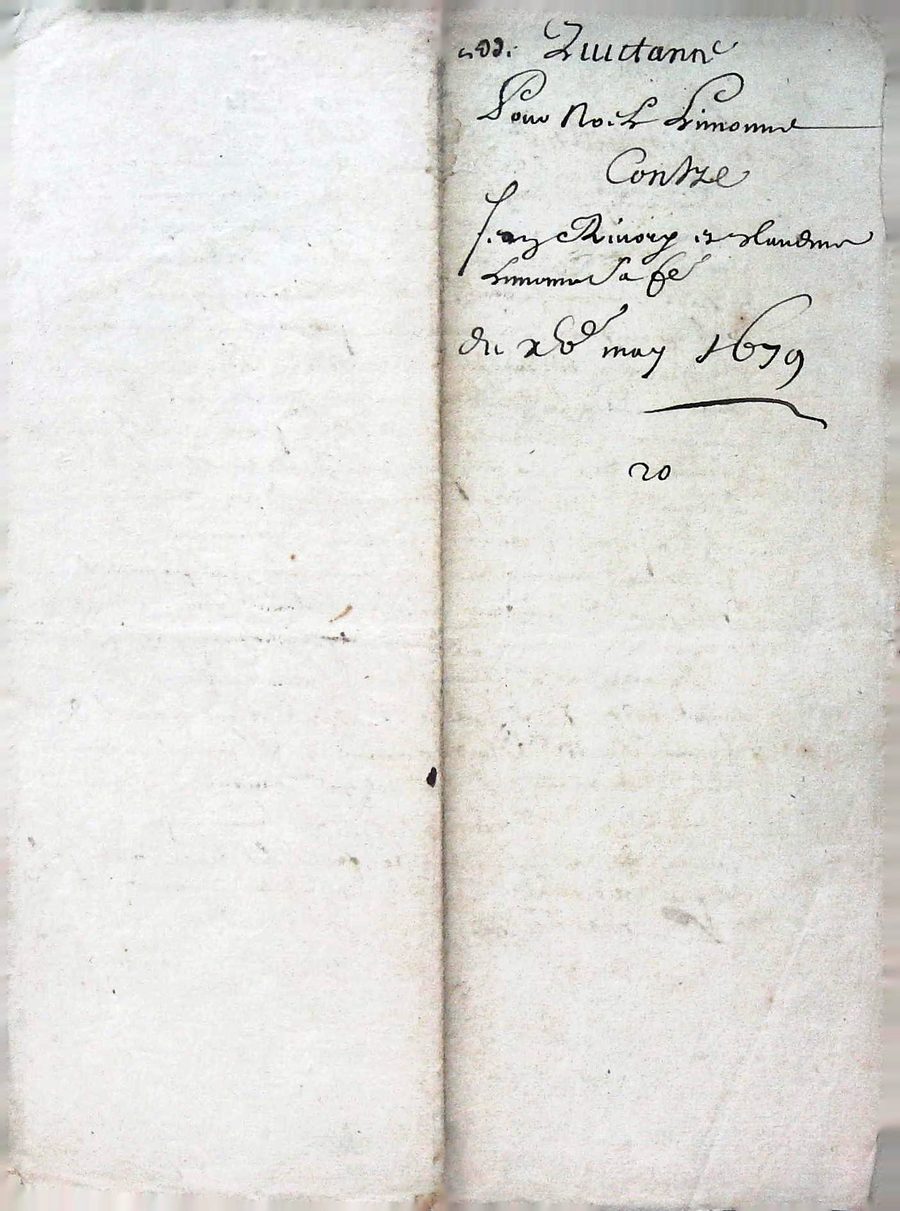 Quictance
Pour Noel Limonne
Contre
Jean Rivory et Claudine
Limonne sa fe
du xve may 1679
20